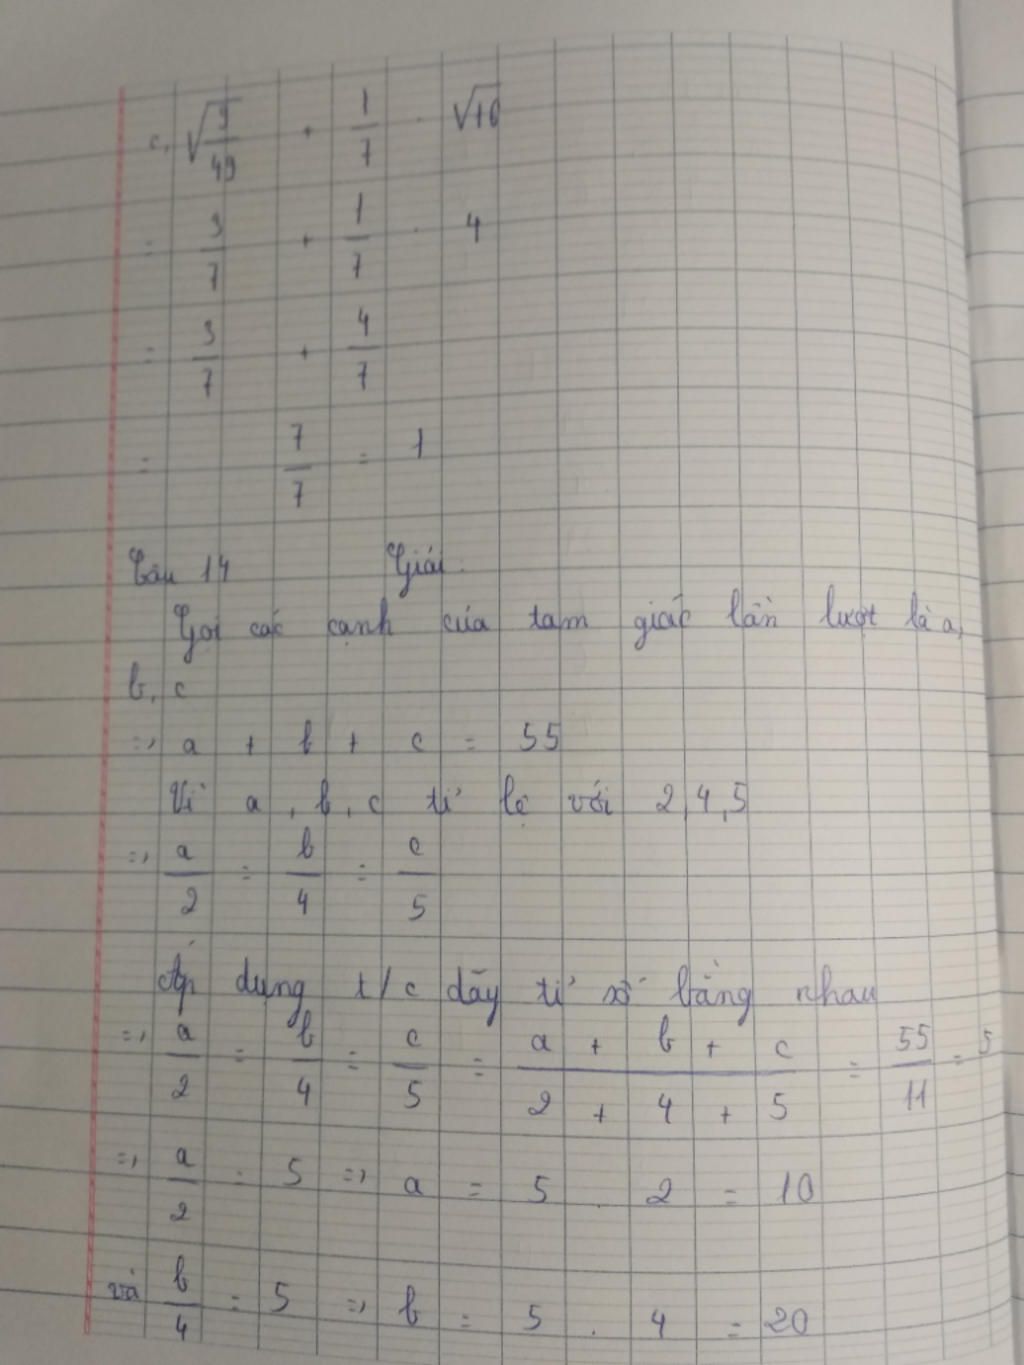 c, √(9/49) + 1/7 . √16
= 3/7 + 1/7 . 4
= 3/7 + 4/7
= 7/7 = 1
Câu 14 Giải:
Gọi các cạnh của tam giác lần lượt là a,
b, c
=> a + b + c = 55
Vì a, b, c tỉ lệ với 2,4,5
=> a/2 = b/4 = c/5
Áp dụng t/c dãy tỉ số bằng nhau
=> a/2 = b/4 = c/5 = (a + b + c)/(2 + 4 + 5) = 55/11 = 5
=> a/2 = 5 => a = 5 . 2 = 10
và b/4 = 5 => b = 5 . 4 = 20